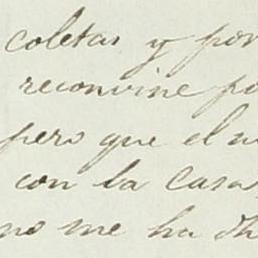 coletas y por
reconvine po
pero que el m
con la casa,
no me ha dh